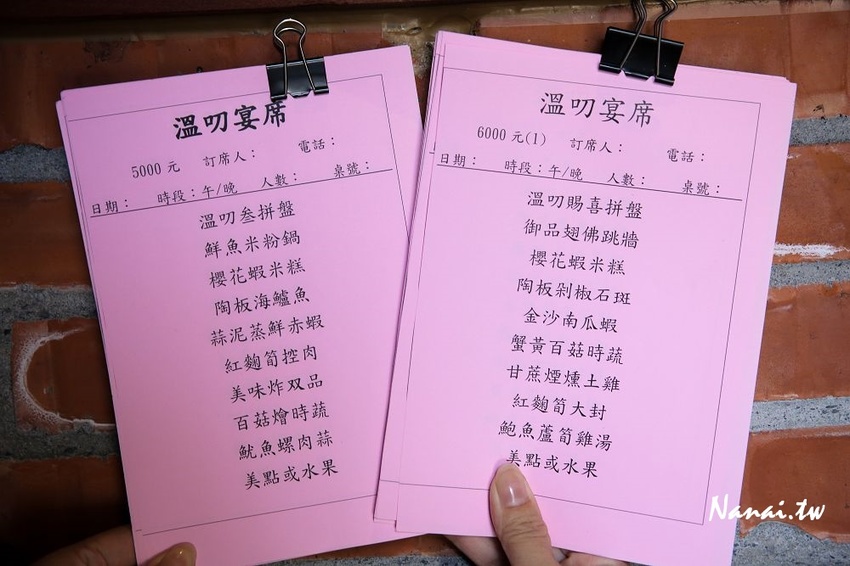 溫叨宴席
5000 元 訂席人： 電話：
日期： 時段：午/晚 人數： 桌號：
溫叨叁拼盤
鮮魚米粉鍋
櫻花蝦米糕
陶板海鱸魚
蒜泥蒸鮮赤蝦
紅麴筍控肉
美味炸双品
百菇燴時蔬
魷魚螺肉蒜
美點或水果
溫叨宴席
6000 元(1) 訂席人： 電話：
日期： 時段：午/晚 人數： 桌號：
溫叨賜喜拼盤
御品翅佛跳牆
櫻花蝦米糕
陶板剁椒石斑
金沙南瓜蝦
蟹黃百菇時蔬
甘蔗煙燻土雞
紅麴筍大封
鮑魚蘆筍雞湯
美點或水果
Nanai.tw